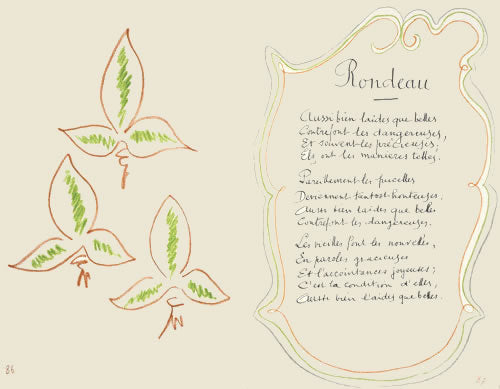 Rondeau
Aussi bien laides que belles
Contrefont les dangereuses,
Et souvent les précieuses;
Els ont les manières telles.
Pareillement les pucelles
Deviennent tantost honteuses;
Aussi bien laides que belles
Contrefont les dangereuses.
Les vieilles font les nouvelles,
En paroles gracieuses
Et l'accointances joyeuses;
C'est la condition d'elles,
Aussi bien laides que belles.
86
87